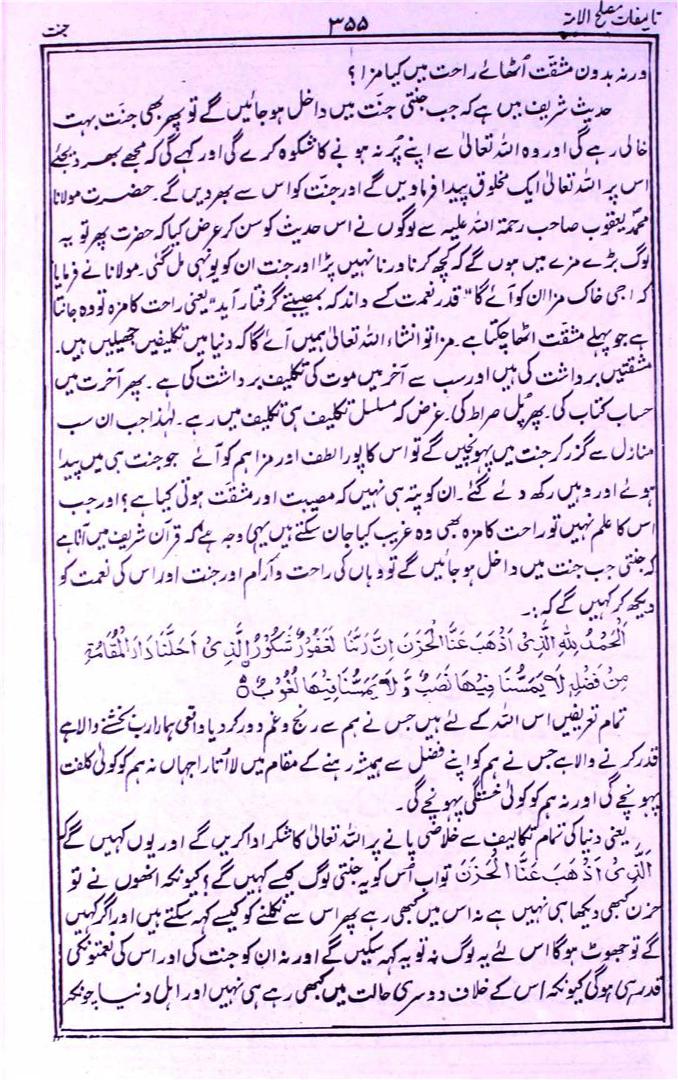 تالیفات مصلح الامۃ ۳۵۵ جنت
ورنہ بدون مشقت اٹھائے راحت میں کیا مزا؟
حدیث شریف میں ہے کہ جب جنتی جنّت میں داخل ہوجائیں گے تو پھر بھی جنّت بہت
خالی رہے گی اور وہ اللہ تعالیٰ سے اپنے پُر نہ ہونے کا شکوہ کرے گی اور کہے گی کہ مجھے بھر دیجئے
اس پر اللہ تعالیٰ ایک مخلوق پیدا فرماویں گے اور جنّت کو اس سے بھر دیں گے۔ حضرت مولانا
محمّد یعقوب صاحب رحمۃ اللہ علیہ سے لوگوں نے اس حدیث کو سن کر عرض کیا کہ حضرت پھر تو یہ
لوگ بڑے مزے میں ہوں گے کہ کچھ کرنا ورنا نہیں پڑا اور جنت ان کو یونہی مل گئی۔ مولانا نے فرمایا
کہ اجی خاک مزا ان کو آئے گا "قدر نعمت کسے داند کہ بمصیبتے گرفتار آید" یعنی راحت کا مزہ تو وہ جانتا
ہے جو پہلے مشقت اٹھا چکتا ہے۔ مزا تو انشاء اللہ تعالیٰ ہمیں آئے گا کہ دنیا میں تکلیفیں جھیلیں ہیں۔
مشقتیں برداشت کی ہیں اور سب سے آخر میں موت کی تکلیف برداشت کی ہے۔ پھر آخرت میں
حساب کتاب کی۔ پھر پُل صراط کی۔ غرض کہ مسلسل تکلیف ہی تکلیف میں رہے۔ لہٰذا جب ان سب
منازل سے گزر کر جنت میں پہونچیں گے تو اس کا پورا لطف اور مزا ہم کو آئے جو جنت ہی میں پیدا
ہوئے اور وہیں رکھ دئے گئے۔ ان کو پتہ ہی نہیں کہ مصیبت اور مشقّت ہوتی کیا ہے؟ اور جب
اس کا علم نہیں تو راحت کا مزہ بھی وہ غریب کیا جان سکتے ہیں یہی وجہ ہے کہ قرآن شریف میں آتا ہے
کہ جنتی جب جنت میں داخل ہوجائیں گے تو وہاں کی راحت و آرام اور جنت اور اس کی نعمت کو
دیکھ کر کہیں گے کہ :۔
اَلْحَمْدُ لِلّٰهِ الَّذِیْ اَذْهَبَ عَنَّا الْحَزَنَ اِنَّ رَبَّنَا لَغَفُوْرٌ شَكُوْرٌ الَّذِیْ اَحَلَّنَا دَارَ الْمُقَامَةِ
مِنْ فَضْلِهٖ لَا یَمَسُّنَا فِیْهَا نَصَبٌ وَّ لَا یَمَسُّنَا فِیْهَا لُغُوْبٌ ○
تمام تعریفیں اس اللہ کے لئے ہیں جس نے ہم سے رنج و غم دور کر دیا واقعی ہمارا رب بخشنے والا ہے
قدر کرنے والا ہے جس نے ہم کو اپنے فضل سے ہمیشہ رہنے کے مقام میں لا اُتارا جہاں نہ ہم کو کوئی کلفت
پہونچے گی اور نہ ہم کو کوئی خستگی پہونچے گی۔
یعنی دنیا کی تمام تکالیف سے خلاصی پانے پر اللہ تعالیٰ کا شکر ادا کریں گے اور یوں کہیں گے
اَلَّذِیْ اَذْهَبَ عَنَّا الْحَزَنَ تو اب اُس کو یہ جنتی لوگ کیسے کہیں گے؟ کیونکہ انھوں نے تو
حزن کبھی دیکھا ہی نہیں ہے نہ اس میں کبھی رہے پھر اس سے نکلنے کو کیسے کہہ سکتے ہیں اور اگر کہیں
گے تو جھوٹ ہوگا اس لئے یہ لوگ نہ تو یہ کہہ سکیں گے اور نہ ان کو جنت کی اور اس کی نعمتونکی
قدر ہی ہوگی کیونکہ اس کے خلاف دوسری حالت میں کبھی رہے ہی نہیں اور اہل دنیا چونکہ